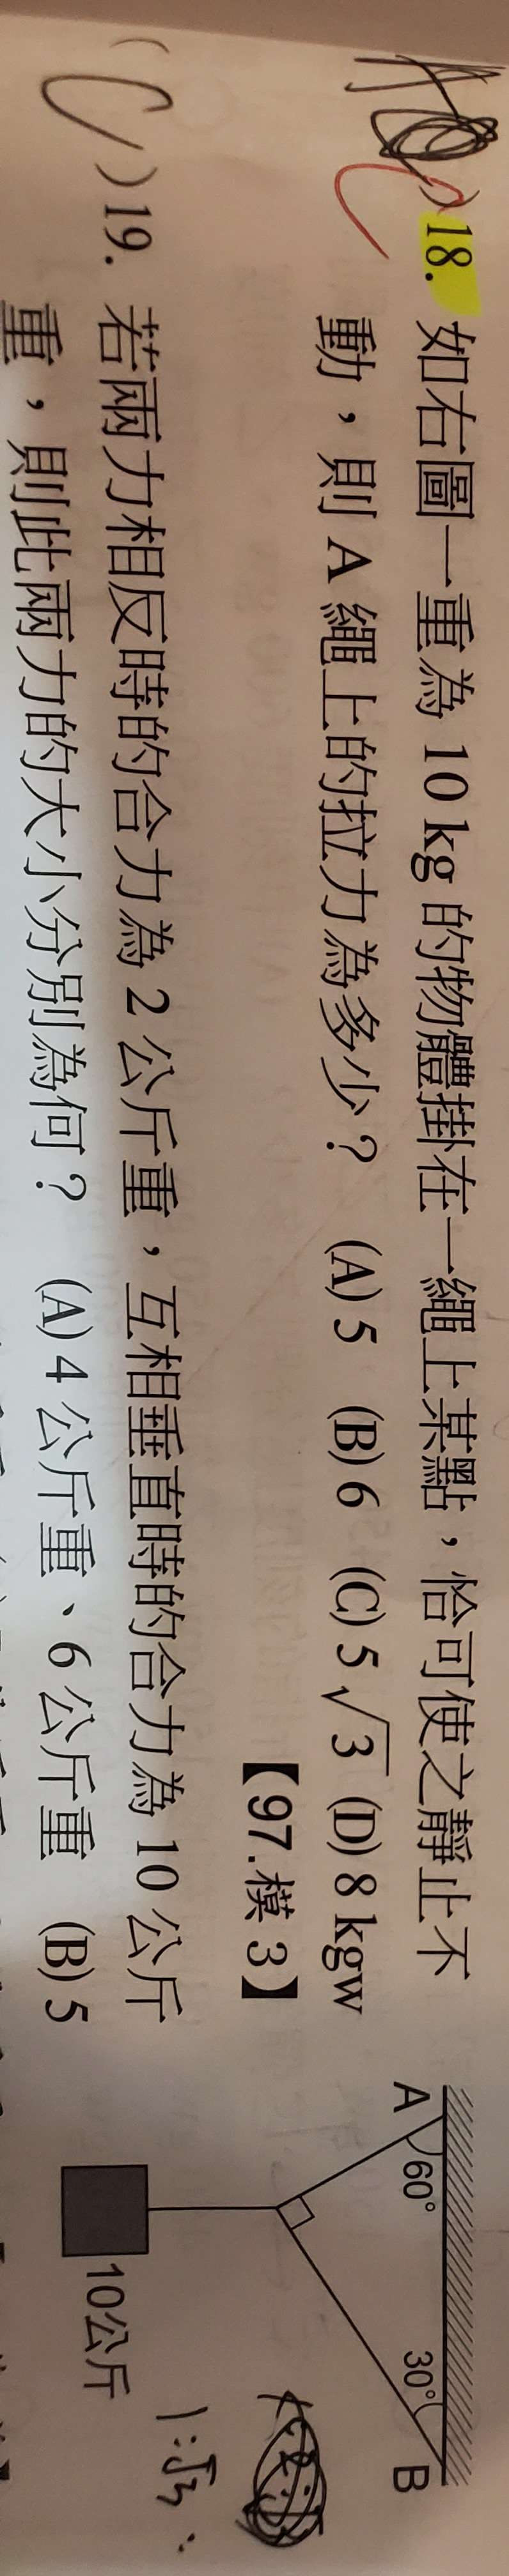 )18. 如右圖一重為 10 kg 的物體掛在一繩上某點，恰可使之靜止不
動，則 A 繩上的拉力為多少？ (A) 5 (B) 6 (C) 5√3 (D) 8 kgw
【97.模 3】
A 60° 30° B
10公斤
1:√3:
( C )19. 若兩力相反時的合力為 2 公斤重，互相垂直時的合力為 10 公斤
重，則此兩力的大小分別為何？ (A) 4 公斤重、6 公斤重 (B) 5